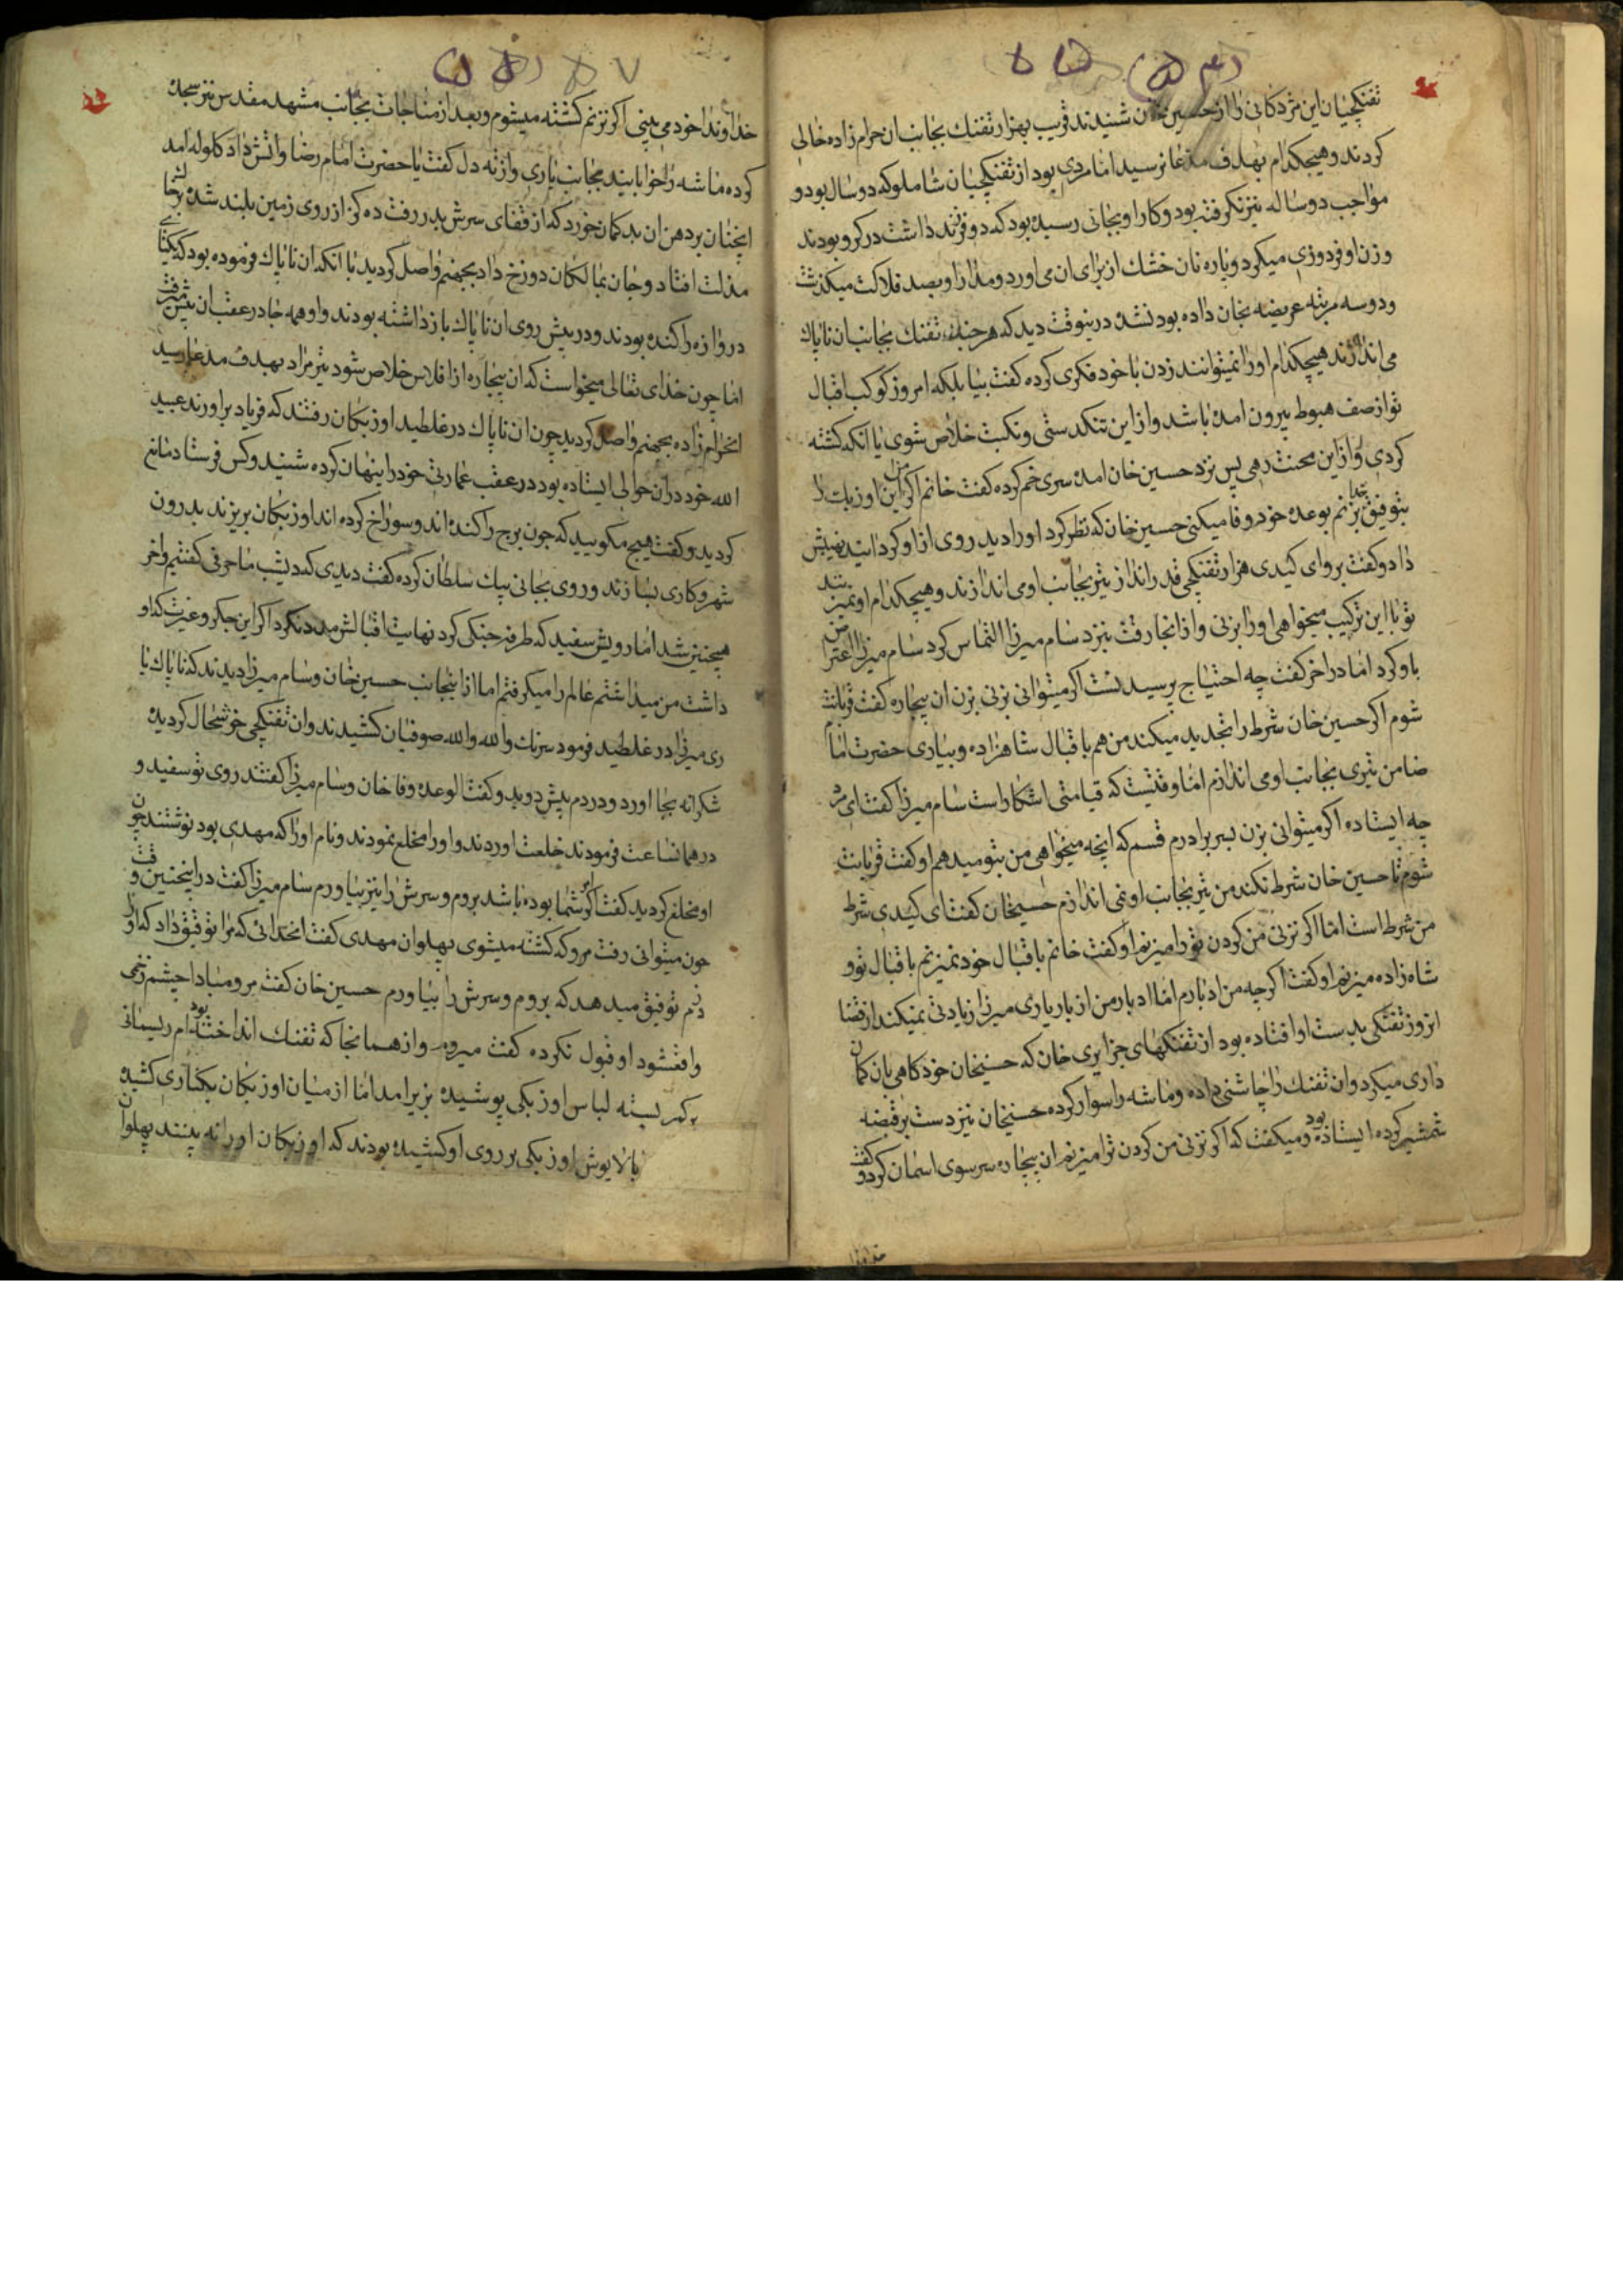 تفنکچیان این مژدکانی را از حسین خان شنیدند قریب بهزار تفنك بجانب ان حرام زاده خالی
کردند و هیچکدام بهدف مدعا نرسید اما مردی بود از تفنکچیان شاملو که دو سال بود و
مواجب دو ساله نیز نکرفته بود و کار او بجائی رسیده بود که دو فرزند داشت در کرو بودند
و زن او فردوزی میکرد و پاره نان خشك از برای ان می اورد و مدار او بصد فلاکت میکذشت
و دو سه مرتبه عریضه بخان داده بود نشده درینوقت دید که هر چند تفنك بجانب ان ناپاك
می اندازند هیچکدام او را نمیتوانند زدن با خود فکری کرده کفت بیا بلکه امروز کوکب اقبال
تو از صف هبوط بیرون امده باشد و از این تنکدستی و نکبت خلاص شوی یا انکه کشته
کردی و از این محنت رهی پس نزد حسین خان امده سری خم کرده کفت خانم اکر من این اوزبك را
بتوفیق خدا بزنم بوعده خود وفا میکنی حسین خان که نظر کرد او را دید روی از او کردانید نهیبش
داد و کفت برو ای کیدی هزار تفنکچی قدر انداز تیر بجانب او می اندازند و هیچکدام او نمیزنند
تو با این ترکیب میخواهی او را بزنی و از انجا رفت بنزد سام میرزا التماس کرد سام میرزا اعتراض
باو کرد اما در اخر کفت چه احتیاج پرسید نست اکر میتوانی بزنی بزن ان بیچاره کفت قربانت
شوم اکر حسین خان شرط را تجدید میکند من هم باقبال شاهزاده و بیاری حضرت امام
ضامن تیری بجانب او می اندازم اما وقتیست که قیامتی اشکار است سام میرزا کفت ای مرد
چه ایستاده اکر میتوانی بزن بسر برادرم قسم که انچه میخواهی من بتو میدهم او کفت قربانت
شوم تا حسین خان شرط نکند من تیر بجانب او نمی اندازم حسینخان کفت ای کیدی شرط
من شرط است اما اکر نزنی من کردن تو را میزنم او کفت خانم باقبال خود نمیزنم باقبال تو و
شاه زاده میزنم او کفت اکرچه من ادبارم اما ادبار من از بار یاری میرزا زیادتی نمیکند از قضا
انروز تفنکی بدست او افتاده بود از تفنکهای جزایری خان که حسینخان خود کاهی بان کمان
داری میکرد و ان تفنك را چاشنی داده و ماشه را سوار کرده حسینخان نیز دست بر قبضه
شمشیر کرده ایستاده بود و میکفت که اکر نزنی من کردن ترا میزنم ان بیچاره سر سوی اسمان کرد و کفت
خداوندا خود می بینی اکر نزنم کشته میشوم و بعد از مناجات بجانب مشهد مقدس نیز سجده
کرده ماشه را خوابانید بجانب یاری و از ته دل کفت یا حضرت امام رضا و اتش داد کلوله امد
انچنان بر دهن ان بد کمان خورد که از قفای سرش بدر رفت ده کز از روی زمین بلند شده بر خاك
مذلت افتاد و جان بمالکان دوزخ داد بجهنم واصل کردید با انکه ان ناپاك فرموده بود که یکتای
دروازه را کنده بودند و در پیش روی ان ناپاك باز داشته بودند و او همه جا در عقب ان پیش میرفت
اما چون خدای تعالی میخواست که ان بیچاره از افلاس خلاص شود تیر مراد بهدف مدعا رسید
انحرام زاده بجهنم واصل کردید چون ان ناپاك در غلطید اوزبکان رفتند که فریاد براورند عبید
الله خود دران حوالی ایستاده بود در عقب عمارتی خود را پنهان کرده شنید و کس فرستاد مانع
کردید و کفت هیچ مکویید که چون برج را کنده اند و سوراخ کرده اند اوزبکان بریزند بدرون
شهر و کاری بسازند و روی بجانی بیك سلطان کرده کفت دیدی که دیشب ما حرفی کفتیم و اخر
همچنین شد اما رویش سفید که طرفه جنکی کرد نهایت اقبالش مدد نکرد اکر این جکر و غیرت که او
داشت من میداشتم عالم را میکرفتم اما از اینجانب حسین خان و سام میرزا دیدند که ناپاك یا
ری میرزا در غلطید فرمود سرنك والله والله صوفیان کشیدند و ان تفنکچی خوشحال کردیده
شکرانه بجا اورد و در دم پیش دوید و کفت الوعده وفا خان و سام میرزا کفتند روی تو سفید و
در همانساعت فرمودند خلعت اوردند و او را مخلع نمودند و نام او را که مهدی بود نوشتند چون
او مخلع کردید کفت اکر امر شما بوده باشد بروم و سرش را نیز بیاورم سام میرزا کفت در اینچنین وقت
چون میتوانی رفت مرو که کشته میشوی پهلوان مهدی کفت انخدائی که مرا توفیق داد که او را
زدم توفیق میدهد که بروم و سرش را بیاورم حسین خان کفت مرو مبادا چشم زخمی
واقعشود او قبول نکرده کفت میروم و از همانجا که تفنك انداخته بود ام ریسمانی
بر کمر بسته لباس اوزبکی پوشیده بزیر امد اما از میان اوزبکان بکناری کشیده
بالاپوش اوزبکی بر روی او کشیده بودند که اوزبکان او را نه بینند پهلوان